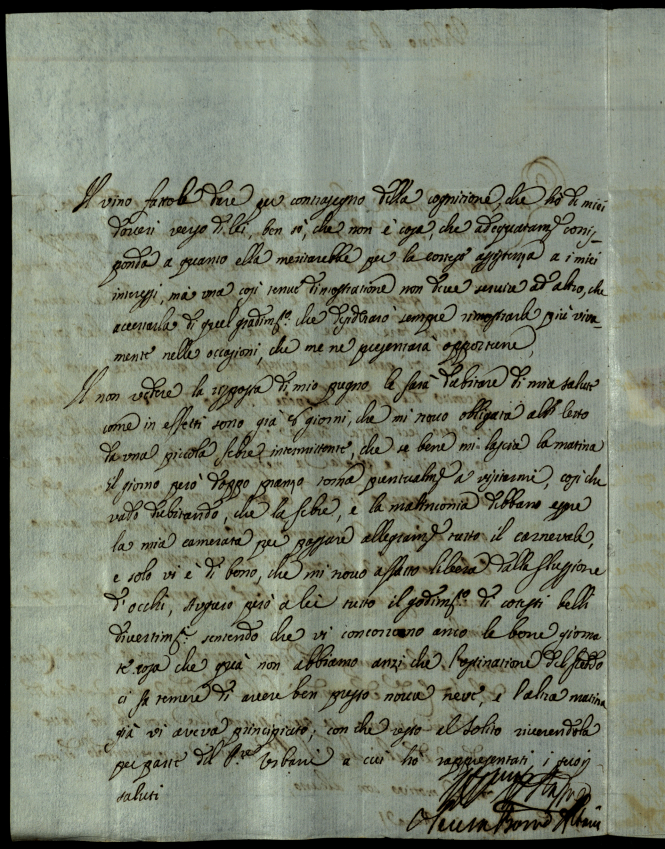 Il vino favola dare per contrasegno della cognitione, che hò de miei
doveri verso di lei, ben sò, che non è cosa, che adequatam.e corris-
ponda a quanto ella meritarebbe per la cortese assistenza a i miei
interessi, mà una così tenue dimostratione non deve servire ad altro, che
accertarla di quel gradim.to che desiderarò sempre rimostrarle più viva-
mente nelle occasioni, che me ne presentarà opportune,
Il non vedere la risposta di mio pugno le farà dubitare di mia salute
come in effetti sono già 8 giorni, che mi trovo obligata al letto
da una piccola febre intermittente, che se bene mi lascia la matina
il giorno però doppo pranzo torna puntualm.e a visitarmi, così che
vado dubitando, che la febre, e la malinconia debbano essere
la mia camerata per passare allegram.e tutto il carnevale,
e solo vi è di bono, che mi trovo affatto libera dalla flussione
d'occhi, Auguro però a lei tutto il godim.to di cotesti belli
divertim.ti sentendo che vi concorrano anco le bone giorna
te cosa che quà non abbiamo anzi che l'ostinatione del freddo
ci fa temere di avere ben presto nova neve, e l'altra matina
già vi aveva principiato, con che resto al solito riverendola
per parte del P.re Urbani a cui ho rappresentati i suoi
saluti